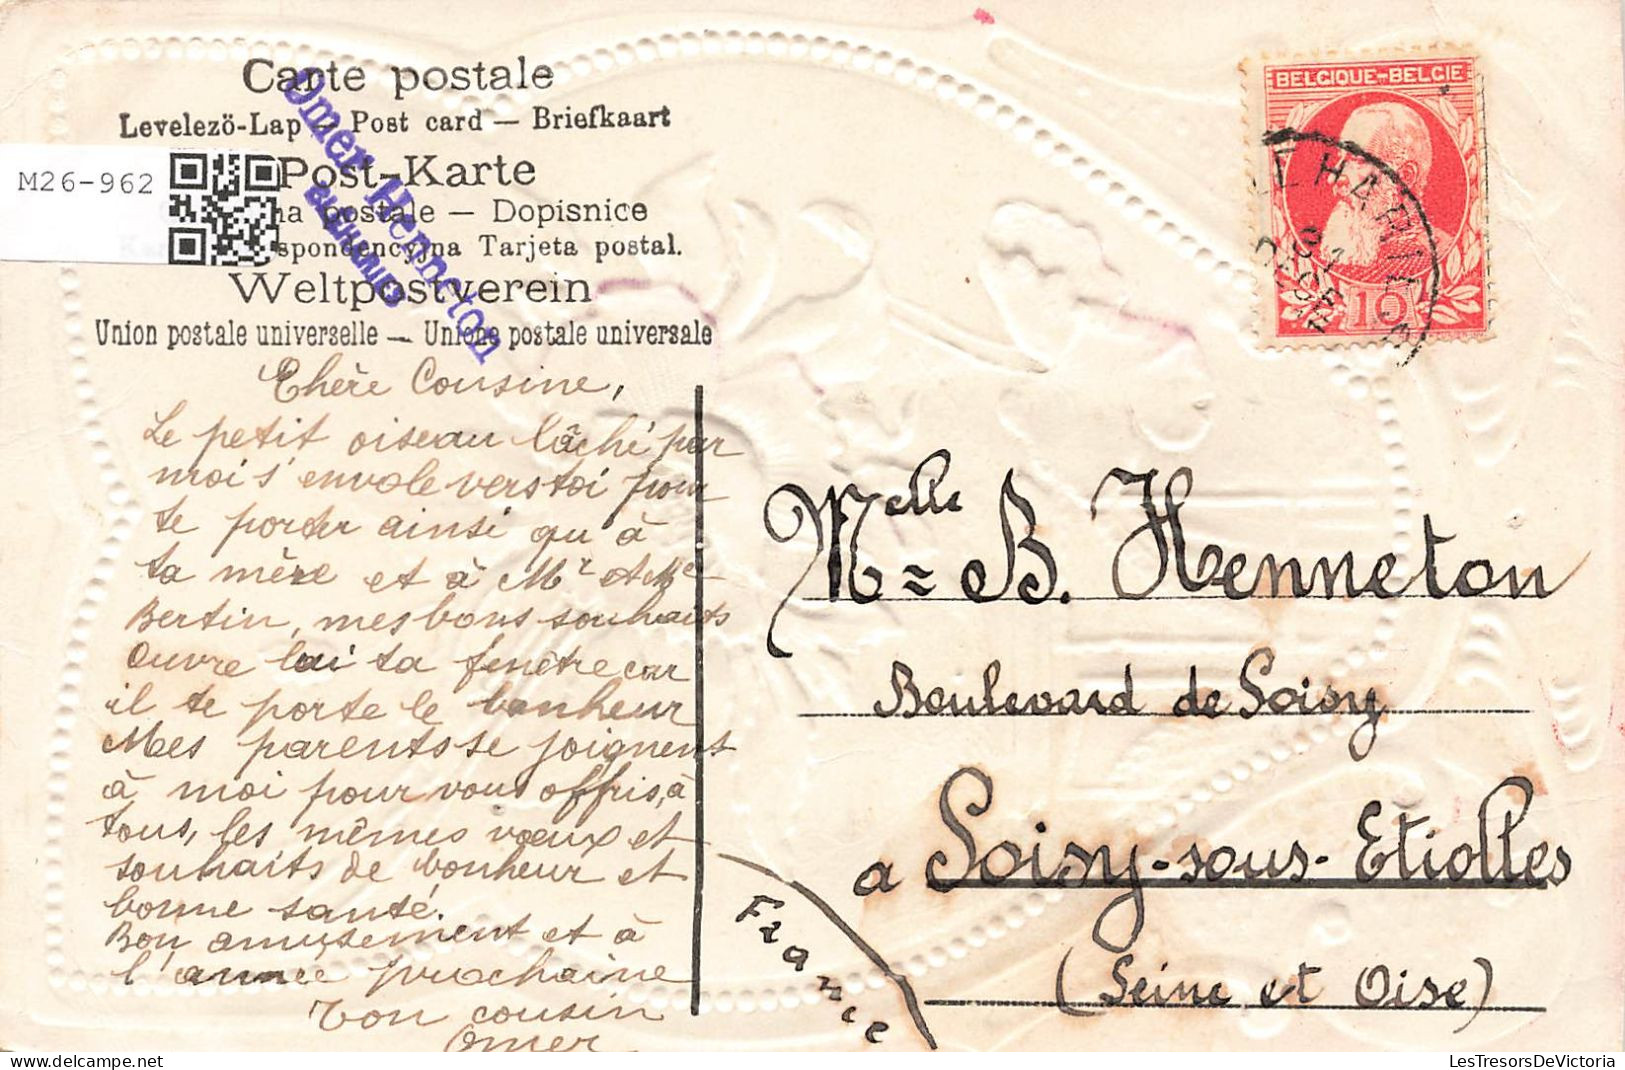 Carte postale
Levelezö-Lap — Post card — Briefkaart
Post-Karte
na postale — Dopisnice
spondencyjna Tarjeta postal.
Weltpostverein
Union postale universelle — Unione postale universale
Omer Henneton
BLÉHARIES
M26-962
BELGIQUE-BELGIE
10
LEHARIES
31
DEC
Chère Cousine,
Le petit oiseau lâché par
moi s'envole vers toi pour
te porter ainsi qu'à
ta mère et à Mr et Me
Bertin, mes bons souhaits
Ouvre lui ta fenêtre car
il te porte le bonheur
Mes parents se joignent
à moi pour vous offris, à
tous, les mêmes vœux et
souhaits de bonheur et
bonne santé.
Bon amusement et à
l'année prochaine
Ton cousin
Omer
Melle B. Henneton
Boulevard de Soisy
a Soisy-sous-Etiolles
(Seine et Oise)
France
LesTresorsDeVictoria